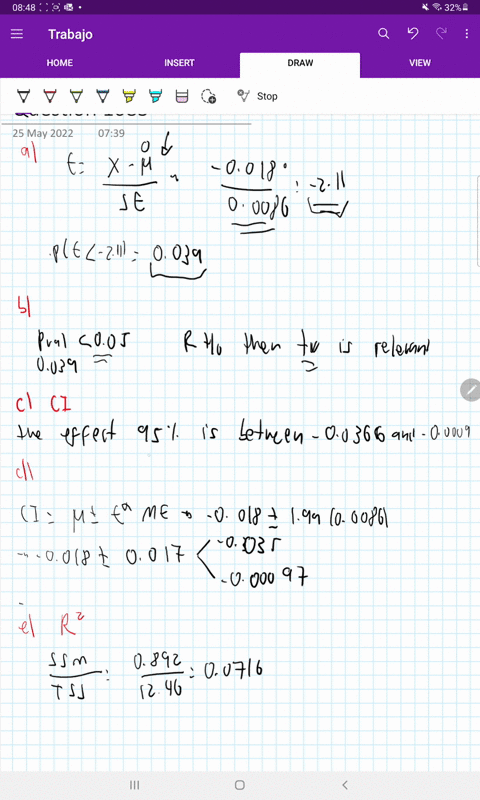 08:48 32%
Trabajo
HOME INSERT DRAW VIEW
Stop
25 May 2022 07:39
a) t = X - μ / SE = -0.018 / 0.0086 = -2.11
0
p(t < -2.11) = 0.039
b)
Pval < 0.05 R H₀ then tv is relevant
0.039
c) CI
the effect 95% is between -0.0366 and -0.0009
d)
CI = μ ± tᵅ ME → -0.018 ± 1.99 (0.0086)
-0.018 ± 0.017 < -0.3035
-0.00097
e) R²
SSM / TSS = 0.892 / 12.46 = 0.0716